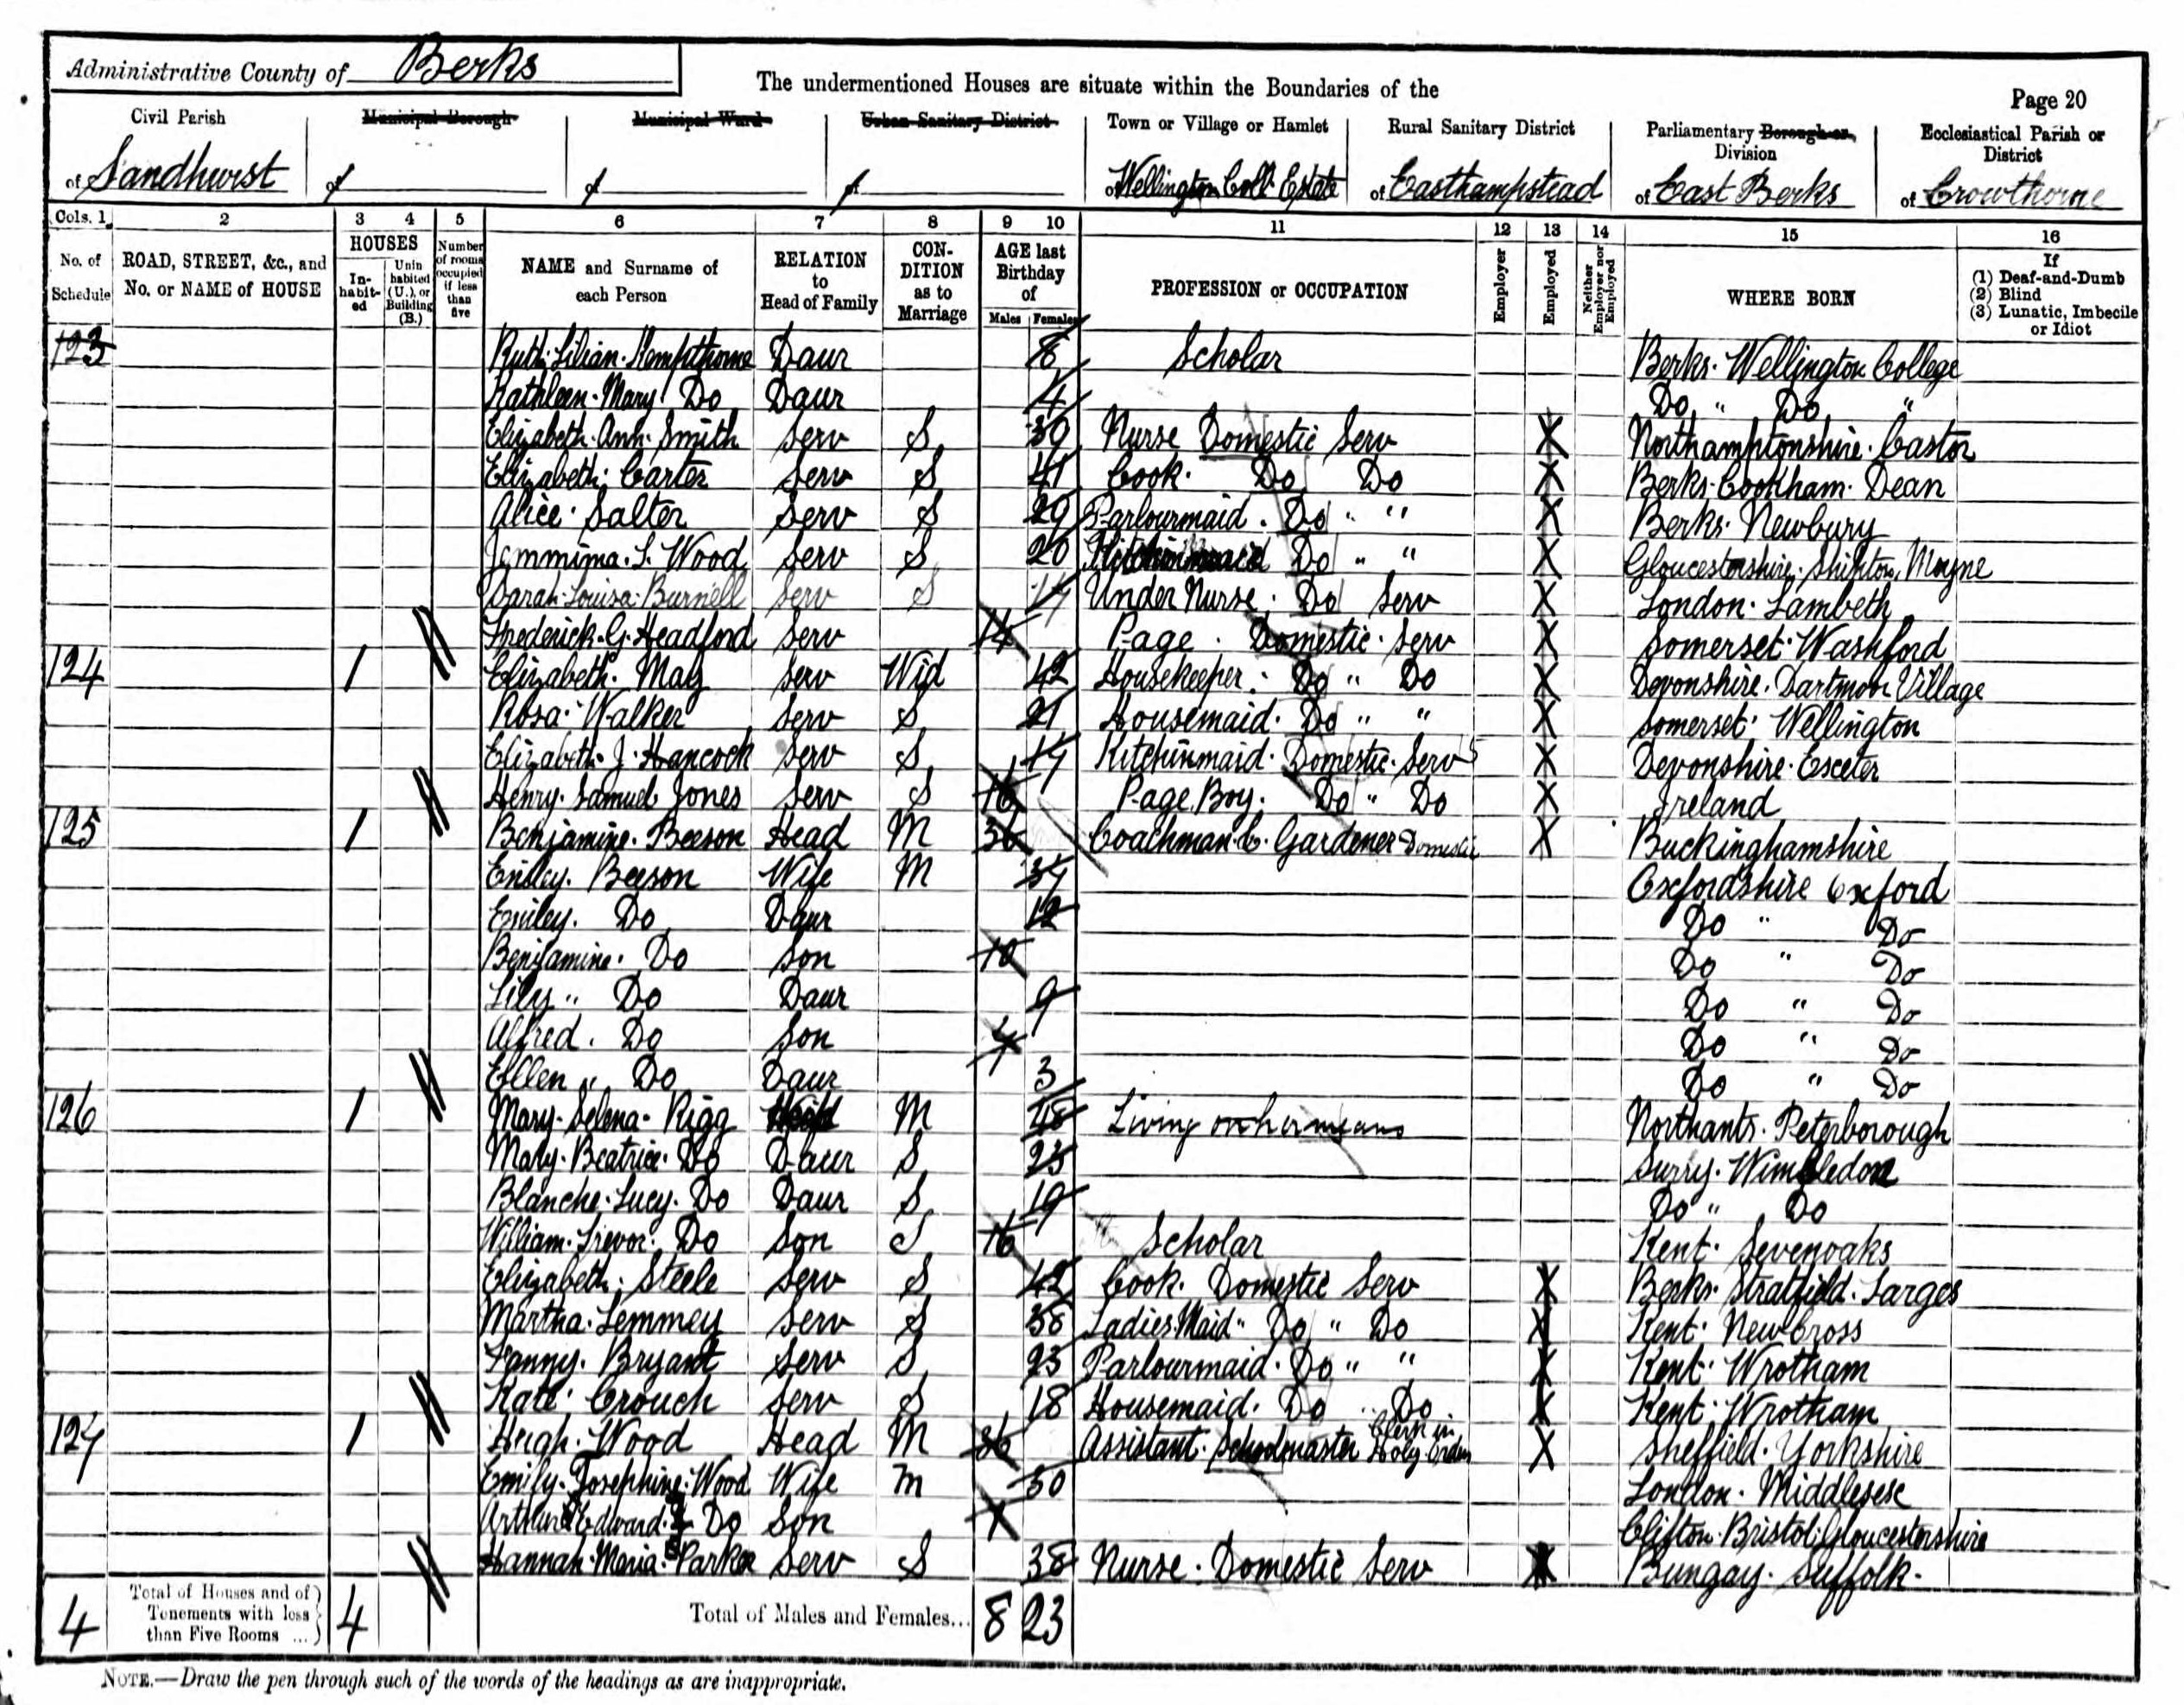 Administrative County of Berks
The undermentioned Houses are situate within the Boundaries of the
Page 20
Civil Parish of Sandhurst
Municipal Borough of
Municipal Ward of
Urban Sanitary District of
Town or Village or Hamlet of Wellington Coll. Estate
Rural Sanitary District of Easthampstead
Parliamentary Borough or Division of East Berks
Ecclesiastical Parish or District of Crowthorne
Cols. 1 2 3 4 5 6 7 8 9 10 11 12 13 14 15 16
No. of Schedule
ROAD, STREET, &c., and No. or NAME of HOUSE
HOUSES
Inhabited
Uninhabited (U.), or Building (B.)
Number of rooms occupied if less than five
NAME and Surname of each Person
RELATION to Head of Family
CONDITION as to Marriage
AGE last Birthday of
Males Females
PROFESSION or OCCUPATION
Employer
Employed
Neither Employer nor Employed
WHERE BORN
If
(1) Deaf-and-Dumb
(2) Blind
(3) Lunatic, Imbecile or Idiot
123 Ruth. Lilian. Kempthorne Daur 8 Scholar Berks. Wellington College
Kathleen. Mary. Do Daur 4 Do " Do "
Elizabeth. Ann. Smith Serv S 39 Nurse Domestic Serv X Northamptonshire. Castor
Elizabeth. Carter Serv S 41 Cook. Do Do X Berks. Cookham. Dean
Alice. Salter Serv S 29 Parlourmaid. Do " " X Berks. Newbury
Jemmima. S. Wood Serv S 20 Kitchinmaid Do " " X Gloucestershire. Shipton Moyne
Sarah. Louisa. Burnell Serv S 17 Under Nurse. Do Serv X London. Lambeth
Frederick. G. Headford Serv 14 Page. Domestic. Serv X Somerset. Washford
124 1 Elizabeth. May Serv Wid 42 Housekeeper. Do " Do X Devonshire. Dartmoor Village
Rosa. Walker Serv S 21 Housemaid. Do " " X Somerset. Wellington
Elizabeth. J. Hancock Serv S 17 Kitchinmaid. Domestic. Serv X Devonshire. Exeter
Henry. Samuel Jones Serv S 16 Page Boy. Do " Do X Ireland
125 1 Benjamine. Beeson Head M 36 Coachman. & Gardener Domestic X Buckinghamshire
Emley. Beeson Wife M 37 Oxfordshire Oxford
Emiley. Do Daur 12 Do " Do
Benjamine. Do Son 10 Do " Do
Lily " Do Daur 9 Do " Do
Alfred. Do Son 7 Do " Do
Ellen " Do Daur 3 Do " Do
126 1 Mary. Selena. Rigg Head M 48 Living on her means Northants. Peterborough
Mary. Beatrice. Do Daur S 23 Surry. Wimbledon
Blanche. Lucy. Do Daur S 19 Do " Do
William. Trevor. Do Son S 16 Scholar Kent. Sevenoaks
Elizabeth. Steele Serv S 42 Cook. Domestic Serv X Berks. Stratfield. Sarges
Martha. Lemmey Serv S 38 Ladies Maid " Do " Do X Kent. New Cross
Fanny. Bryant Serv S 23 Parlourmaid. Do " " X Kent. Wrotham
Kate. Crouch Serv S 18 Housemaid. Do " Do X Kent. Wrotham
127 1 Hugh. Wood Head M 36 Assistant. Schoolmaster Clerk in Holy Orders X Sheffield. Yorkshire
Emily. Josephine. Wood Wife M 30 London. Middlesex
Arthur Edward. Do Son Clifton. Bristol. Gloucestershire
Hannah. Maria. Parker Serv S 38 Nurse. Domestic Serv X Bungay. Suffolk.
4 Total of Houses and of Tenements with less than Five Rooms ... 4 Total of Males and Females... 8 23
NOTE.—Draw the pen through such of the words of the headings as are inappropriate.